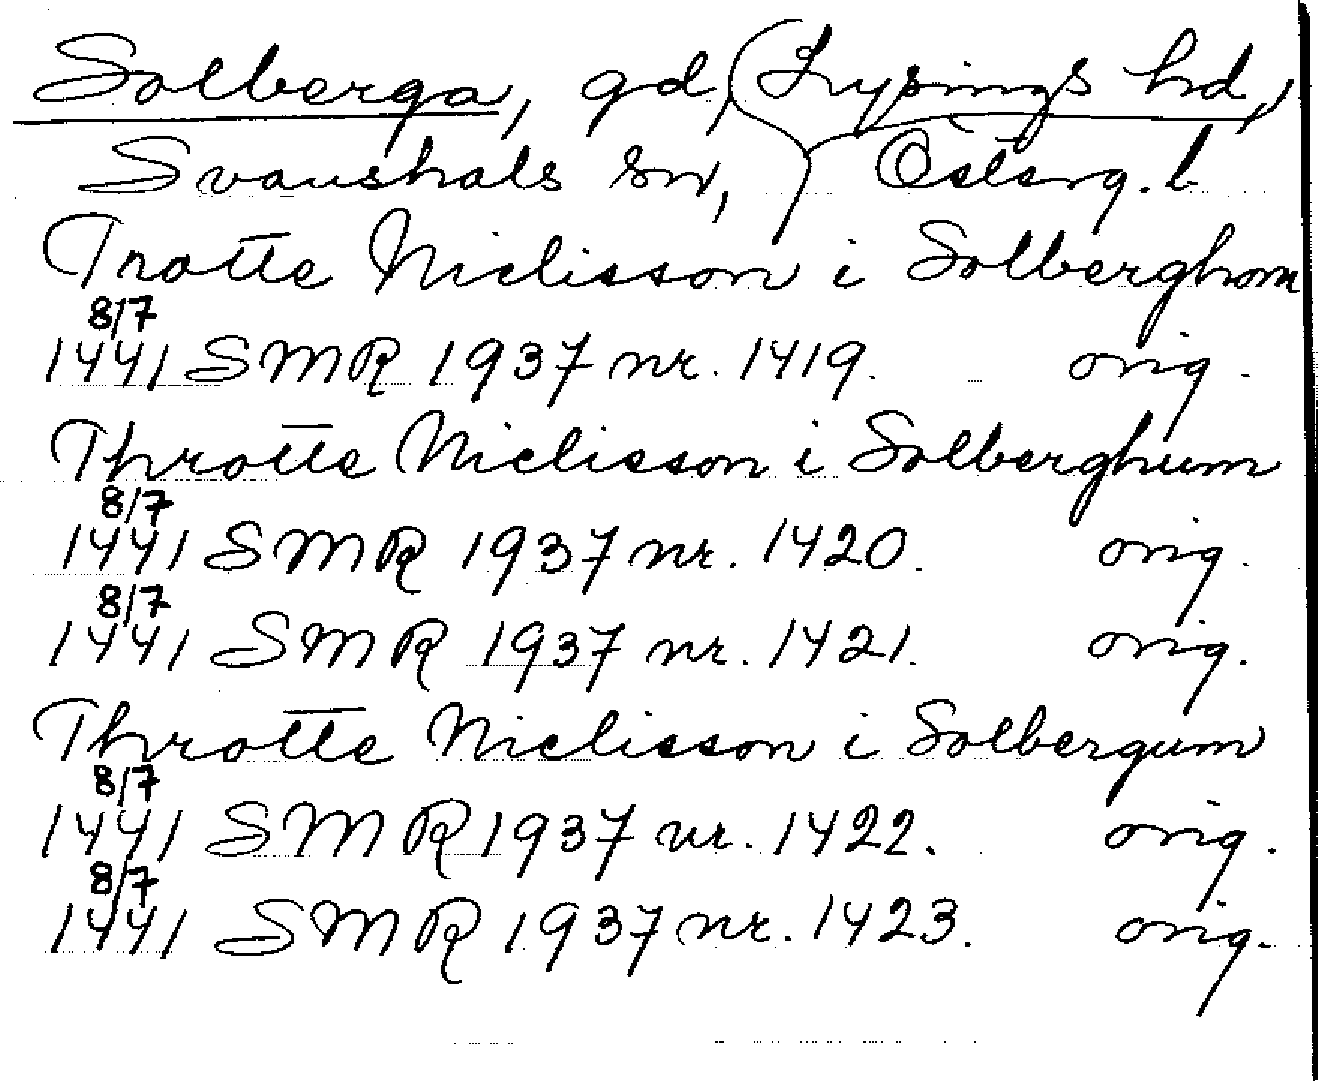 Solberga, gd, (Lysings hd,)
Svanshals sn, Österg. l
Trotte Niclisson i Solberghom
8/7
1441 SMR 1937 nr. 1419. orig.
Throtte Niclisson i Solberghum
8/7
1441 SMR 1937 nr. 1420. orig.
8/7
1441 SMR 1937 nr. 1421. orig.
Throtte Niclisson i Solbergum
8/7
1441 SMR 1937 nr. 1422. orig.
8/7
1441 SMR 1937 nr. 1423. orig.